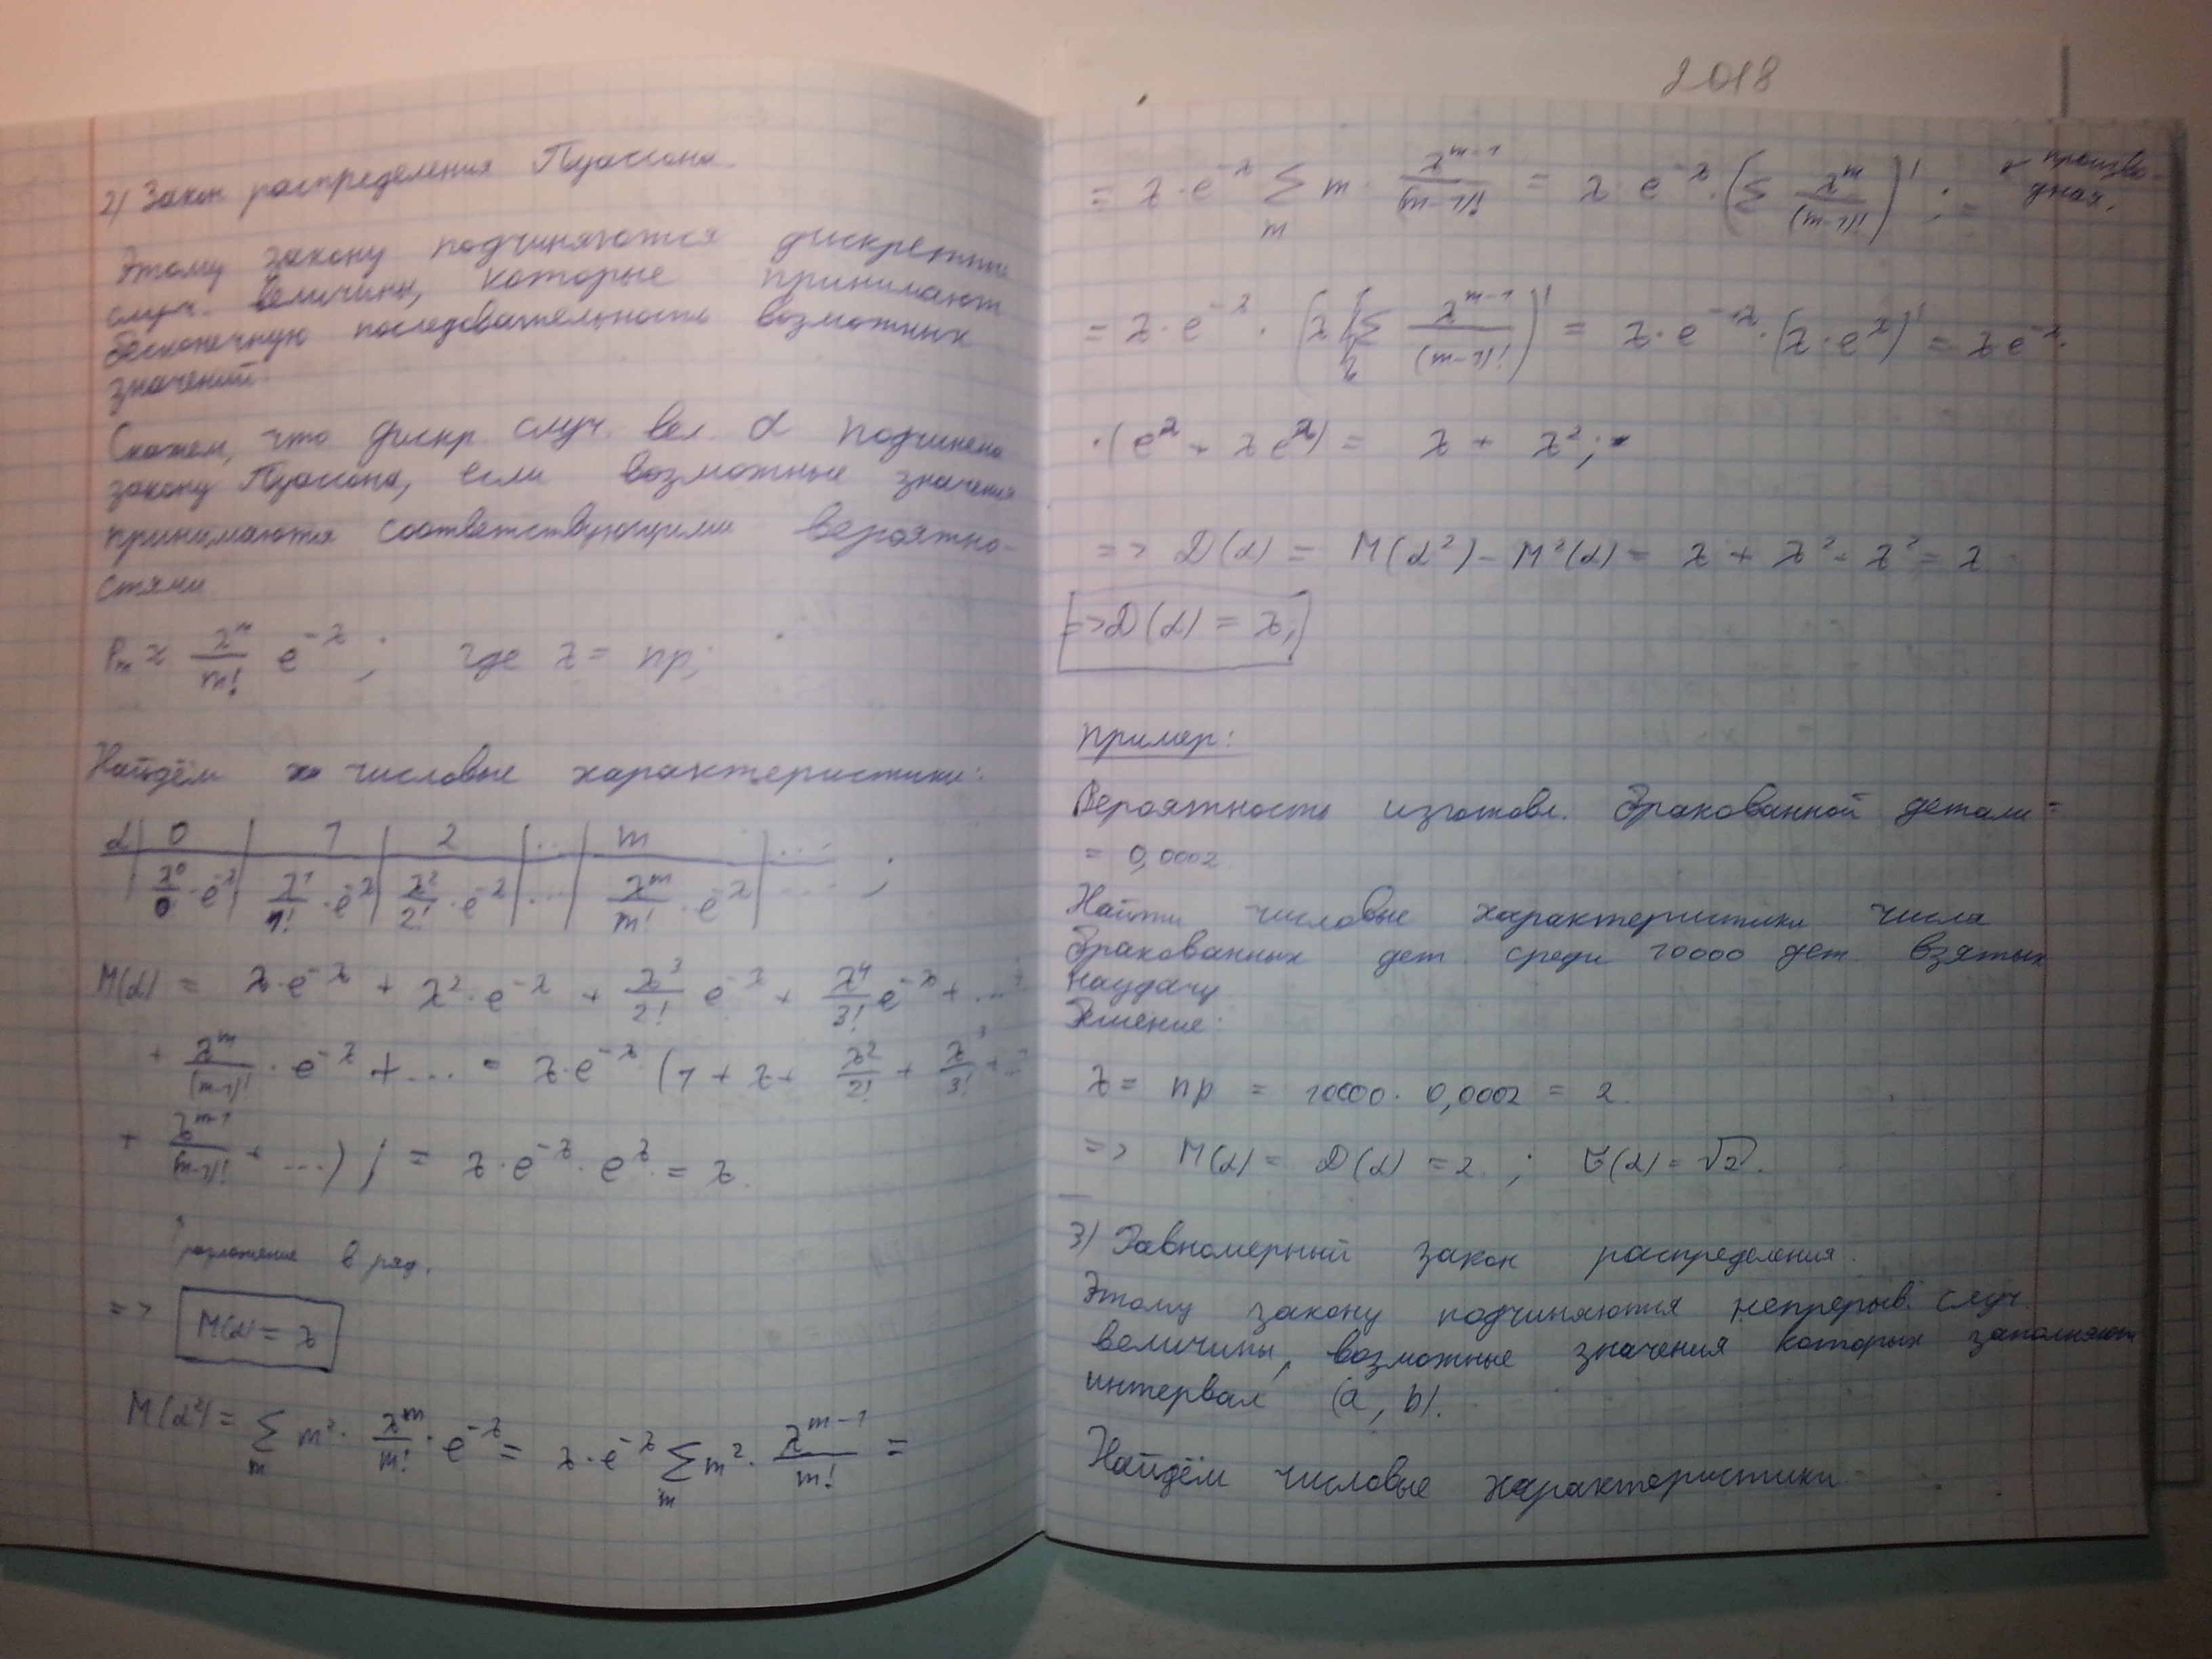 2) Закон распределения Пуассона.
Этому закону подчиняются дискретные
случ. величины, которые принимают
бесконечную последовательность возможных
значений.
Скажем, что дискр. случ. вел. α подчинена
закону Пуассона, если возможные значения
принимаются соответствующими вероятно-
стями
Pm ≈ λ^m/m! e^-λ ; где λ = np;
Найдём числовые характеристики:
α | 0 | 1 | 2 | ... | m | ....
λ^0/0 · e^-λ | λ^1/1! · e^-λ | λ^2/2! · e^-λ | ... | λ^m/m! · e^-λ | .... ;
M(α) = λ·e^-λ + λ^2·e^-λ + λ^3/2! e^-λ + λ^4/3! e^-λ + ...
+ λ^m/(m-1)! · e^-λ + ... = λ·e^-λ · (1 + λ + λ^2/2! + λ^3/3! + ...
+ λ^m-1/(m-1)! + ...) ; = λ·e^-λ · e^λ = λ.
разложение в ряд.
=> M(α) = λ
M(α^2) = Σ_m m^2 · λ^m/m! · e^-λ = λ·e^-λ Σ_m m^2 · λ^m-1/m! =
2018
= λ·e^-λ Σ_m m · λ^m-1/(m-1)! = λ e^-λ · (Σ λ^m/(m-1)!)' ; = произво-
дная.
= λ·e^-λ · (λ Σ λ^m-1/(m-1)!)' = λ·e^-λ · (λ·e^λ)' = λe^-λ·
·(e^λ + λe^λ) = λ + λ^2;
=> D(α) = M(α^2) - M^2(α) = λ + λ^2 - λ^2 = λ
=> D(α) = λ;
Пример:
Вероятность изготовл. бракованной детали =
= 0,0002.
Найти числовые характеристики числа
бракованных дет. среди 10000 дет. взятых
наудачу
Решение:
λ = np = 10000 · 0,0002 = 2.
=> M(α) = D(α) = 2 ; σ(α) = √2.
3) Равномерный закон распределения.
Этому закону подчиняются непрерыв. случ.
величины, возможные значения которых заполняют
интервал (a, b).
Найдём числовые характеристики.